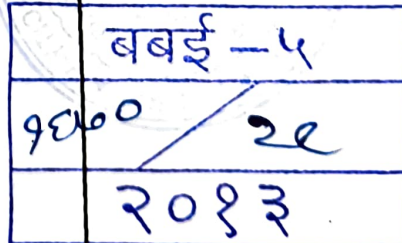 बबई - ५
१६७० / २९
२०१३